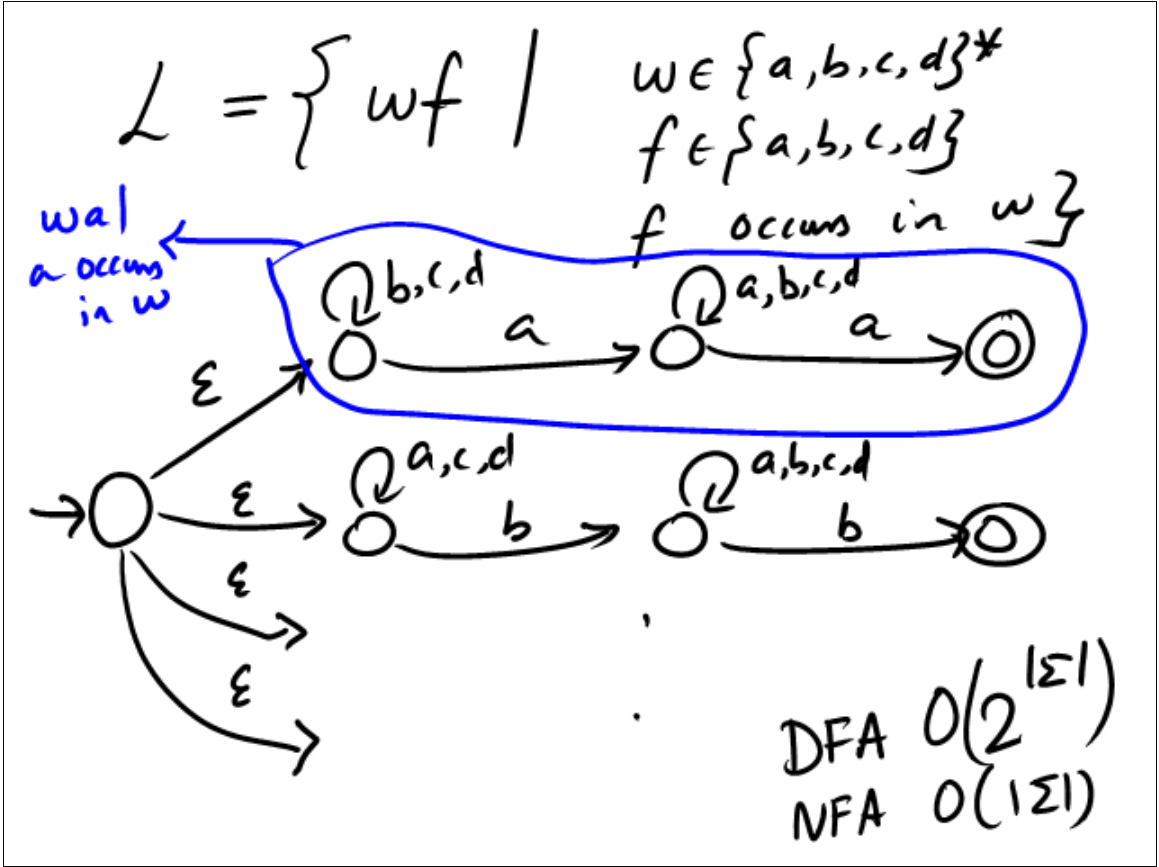 L = { wf | w ∈ {a,b,c,d}*
f ∈ {a,b,c,d}
f occurs in w }
wa|
a occurs
in w
b,c,d
a
a,b,c,d
a
ε
a,c,d
b
a,b,c,d
b
ε
ε
ε
DFA O(2^|Σ|)
NFA O(|Σ|)